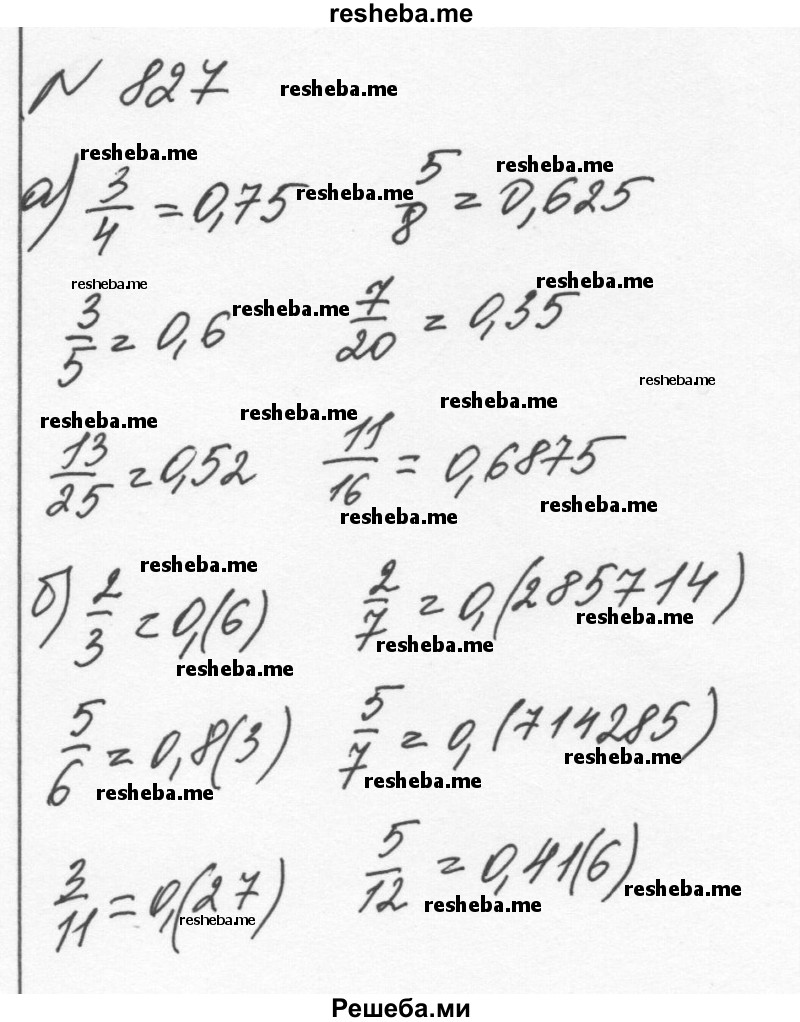 resheba.me
№ 827 resheba.me
resheba.me resheba.me
а) 3/4 = 0,75 resheba.me 5/8 = 0,625
resheba.me resheba.me resheba.me
3/5 = 0,6 7/20 = 0,35
resheba.me
resheba.me resheba.me resheba.me
13/25 = 0,52 11/16 = 0,6875
resheba.me resheba.me
resheba.me
б) 2/3 = 0,(6) 2/7 = 0,(285714)
resheba.me resheba.me resheba.me
5/6 = 0,8(3) 5/7 = 0,(714285)
resheba.me resheba.me resheba.me
3/11 = 0,(27) 5/12 = 0,41(6)
resheba.me resheba.me resheba.me
Решеба.ми